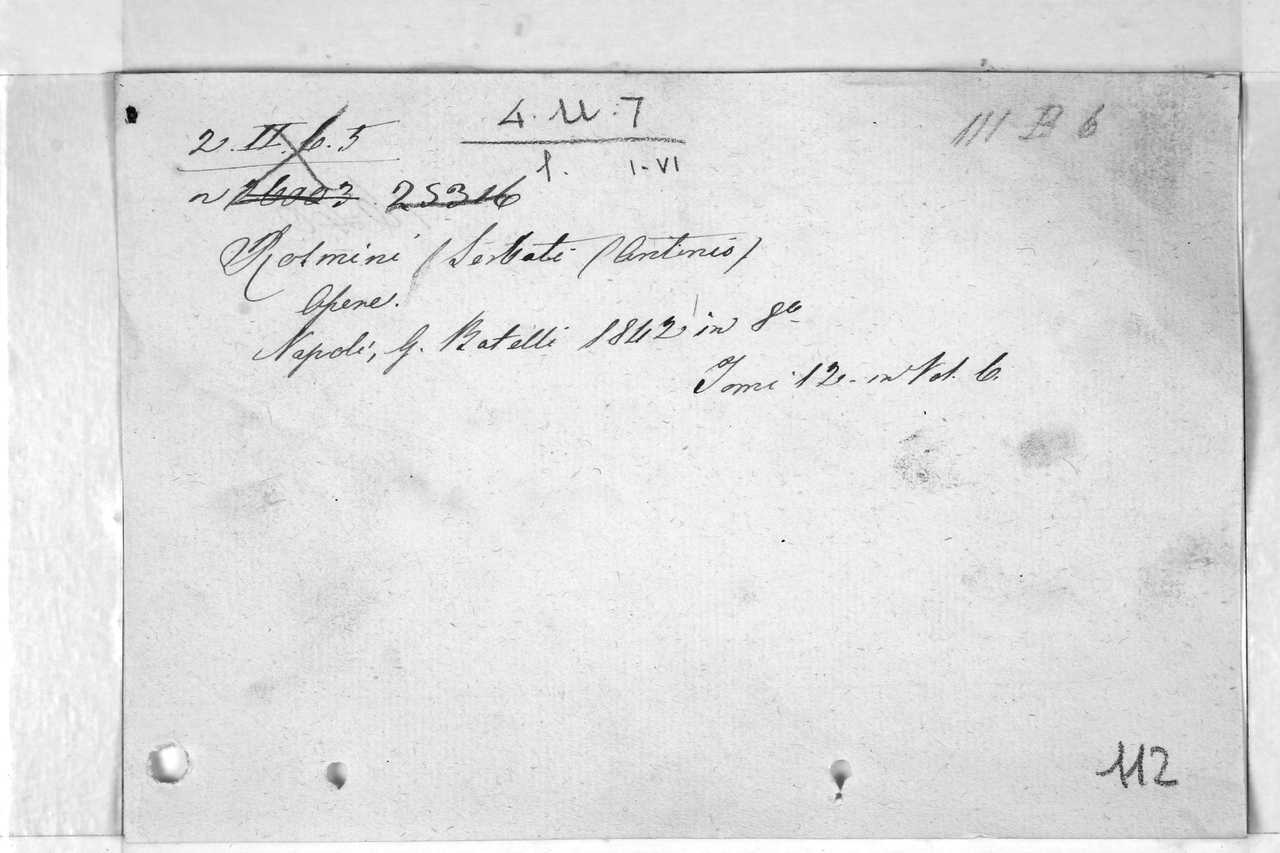 4. 11. 7
1. I-VI
III B 6
2. II. 6. 5
n 26003 25316
Rosmini (Serbati (Antonio)
Opere.
Napoli, G. Batelli 1842 in 8º
Tomi 12. in Vol. 6.
112